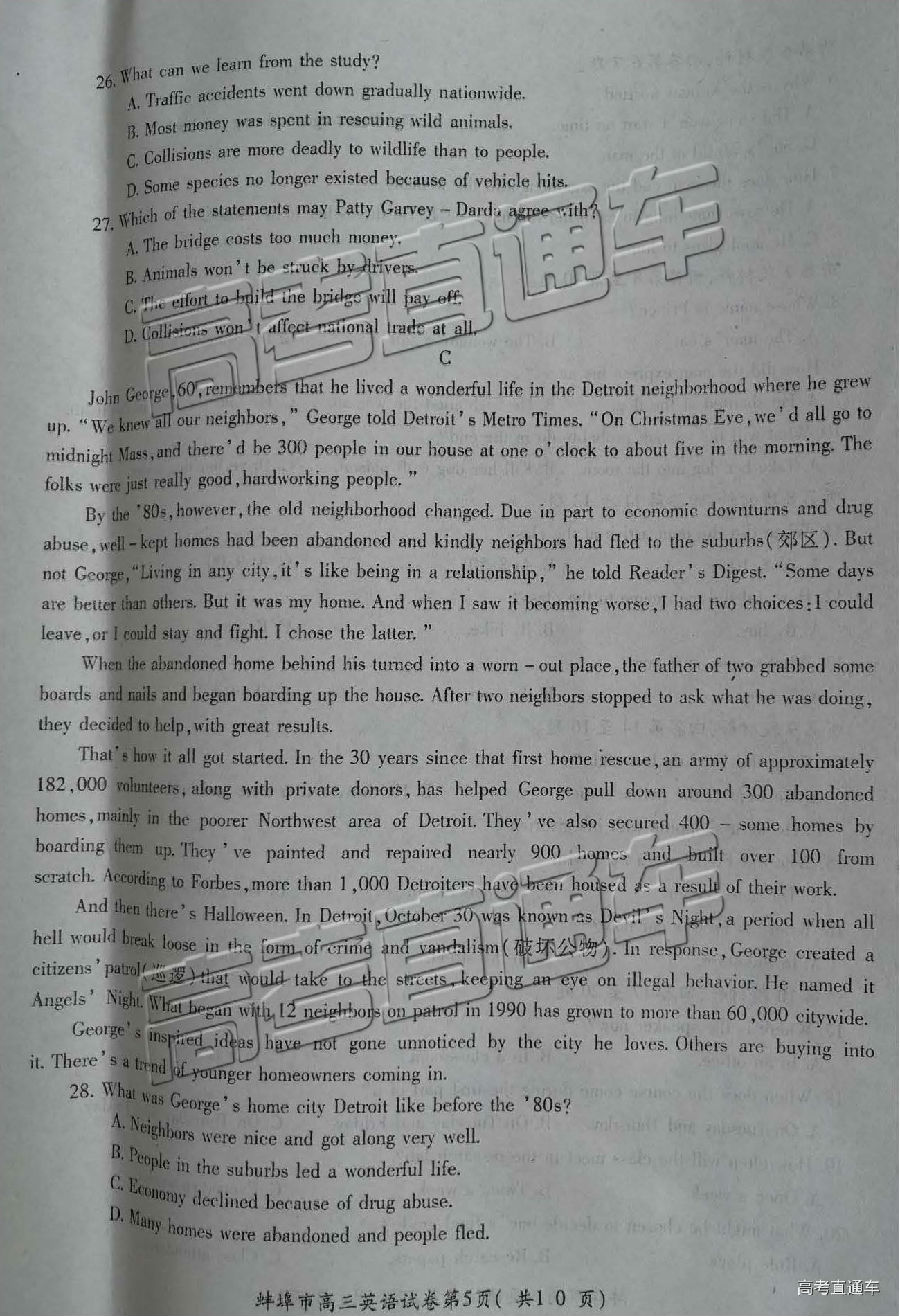 26. What can we learn from the study?
A. Traffic accidents went down gradually nationwide.
B. Most money was spent in rescuing wild animals.
C. Collisions are more deadly to wildlife than to people.
D. Some species no longer existed because of vehicle hits.
27. Which of the statements may Patty Garvey - Darda agree with?
A. The bridge costs too much money.
B. Animals won't be struck by drivers.
C. The effort to build the bridge will pay off.
D. Collisions won't affect national trade at all.
C
John George, 60, remembers that he lived a wonderful life in the Detroit neighborhood where he grew
up. "We knew all our neighbors," George told Detroit's Metro Times. "On Christmas Eve, we'd all go to
midnight Mass, and there'd be 300 people in our house at one o'clock to about five in the morning. The
folks were just really good, hardworking people."
By the '80s, however, the old neighborhood changed. Due in part to economic downturns and drug
abuse, well-kept homes had been abandoned and kindly neighbors had fled to the suburbs(郊区). But
not George, "Living in any city, it's like being in a relationship," he told Reader's Digest. "Some days
are better than others. But it was my home. And when I saw it becoming worse, I had two choices: I could
leave, or I could stay and fight. I chose the latter."
When the abandoned home behind his turned into a worn-out place, the father of two grabbed some
boards and nails and began boarding up the house. After two neighbors stopped to ask what he was doing,
they decided to help, with great results.
That's how it all got started. In the 30 years since that first home rescue, an army of approximately
182,000 volunteers, along with private donors, has helped George pull down around 300 abandoned
homes, mainly in the poorer Northwest area of Detroit. They've also secured 400-some homes by
boarding them up. They've painted and repaired nearly 900 homes and built over 100 from
scratch. According to Forbes, more than 1,000 Detroiters have been housed as a result of their work.
And then there's Halloween. In Detroit, October 30 was known as Devil's Night, a period when all
hell would break loose in the form of crime and vandalism(破坏公物). In response, George created a
citizens' patrol(巡逻) that would take to the streets, keeping an eye on illegal behavior. He named it
Angels' Night. What began with 12 neighbors on patrol in 1990 has grown to more than 60,000 citywide.
George's inspired ideas have not gone unnoticed by the city he loves. Others are buying into
it. There's a trend of younger homeowners coming in.
28. What was George's home city Detroit like before the '80s?
A. Neighbors were nice and got along very well.
B. People in the suburbs led a wonderful life.
C. Economy declined because of drug abuse.
D. Many homes were abandoned and people fled.
蚌埠市高三英语试卷第5页(共10页)
高考直通车
高考直通车
高考直通车